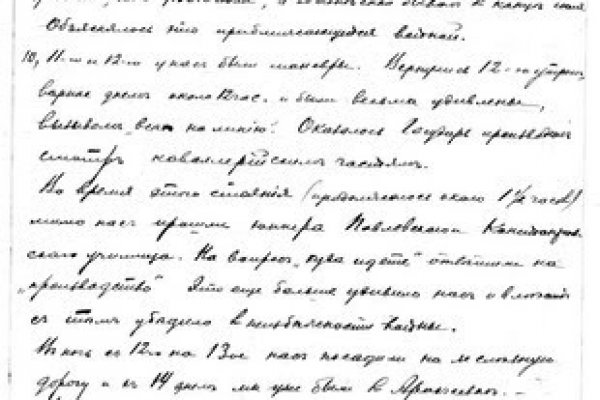 Объяснялось это приближающейся войной.
10, 11-го и 12-го у нас были маневры. Вернулись 12-го утром,
вернее днем около 12 час. и были весьма удивлены,
вызовом „всех на линию“. Оказалось Государь производил
смотр кавалерийским частям.
Во время этого стояния (продолжалось около 1½ часов)
мимо нас прошли юнкера Павловского
училища. На вопрос „куда идете“ отвечали на
„производство“ Это еще больше удивило нас и
с тем убедило в неизбежности войны.
В ночь с 12-го на 13-ое нас посадили на железную
дорогу и к 14 днем мы уже были в